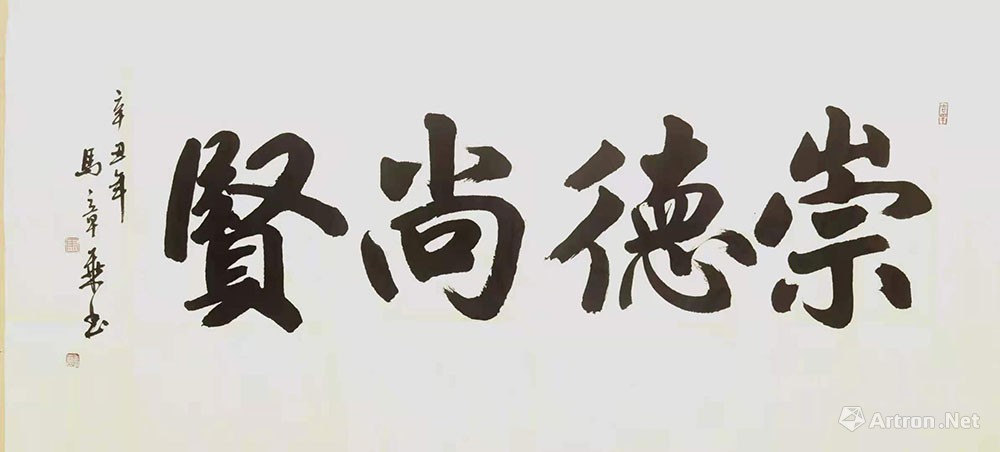 崇德尚賢
辛丑年
馬章乘书
Artron.Net